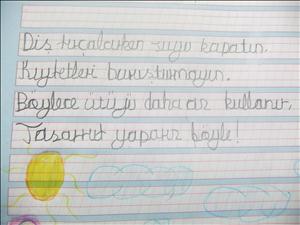 Diş fırçalarken suyu kapatın.
Kıyafetleri buruşturmayın.
Böylece ütüyü daha az kullanır,
Tasarruf yaparız böyle!